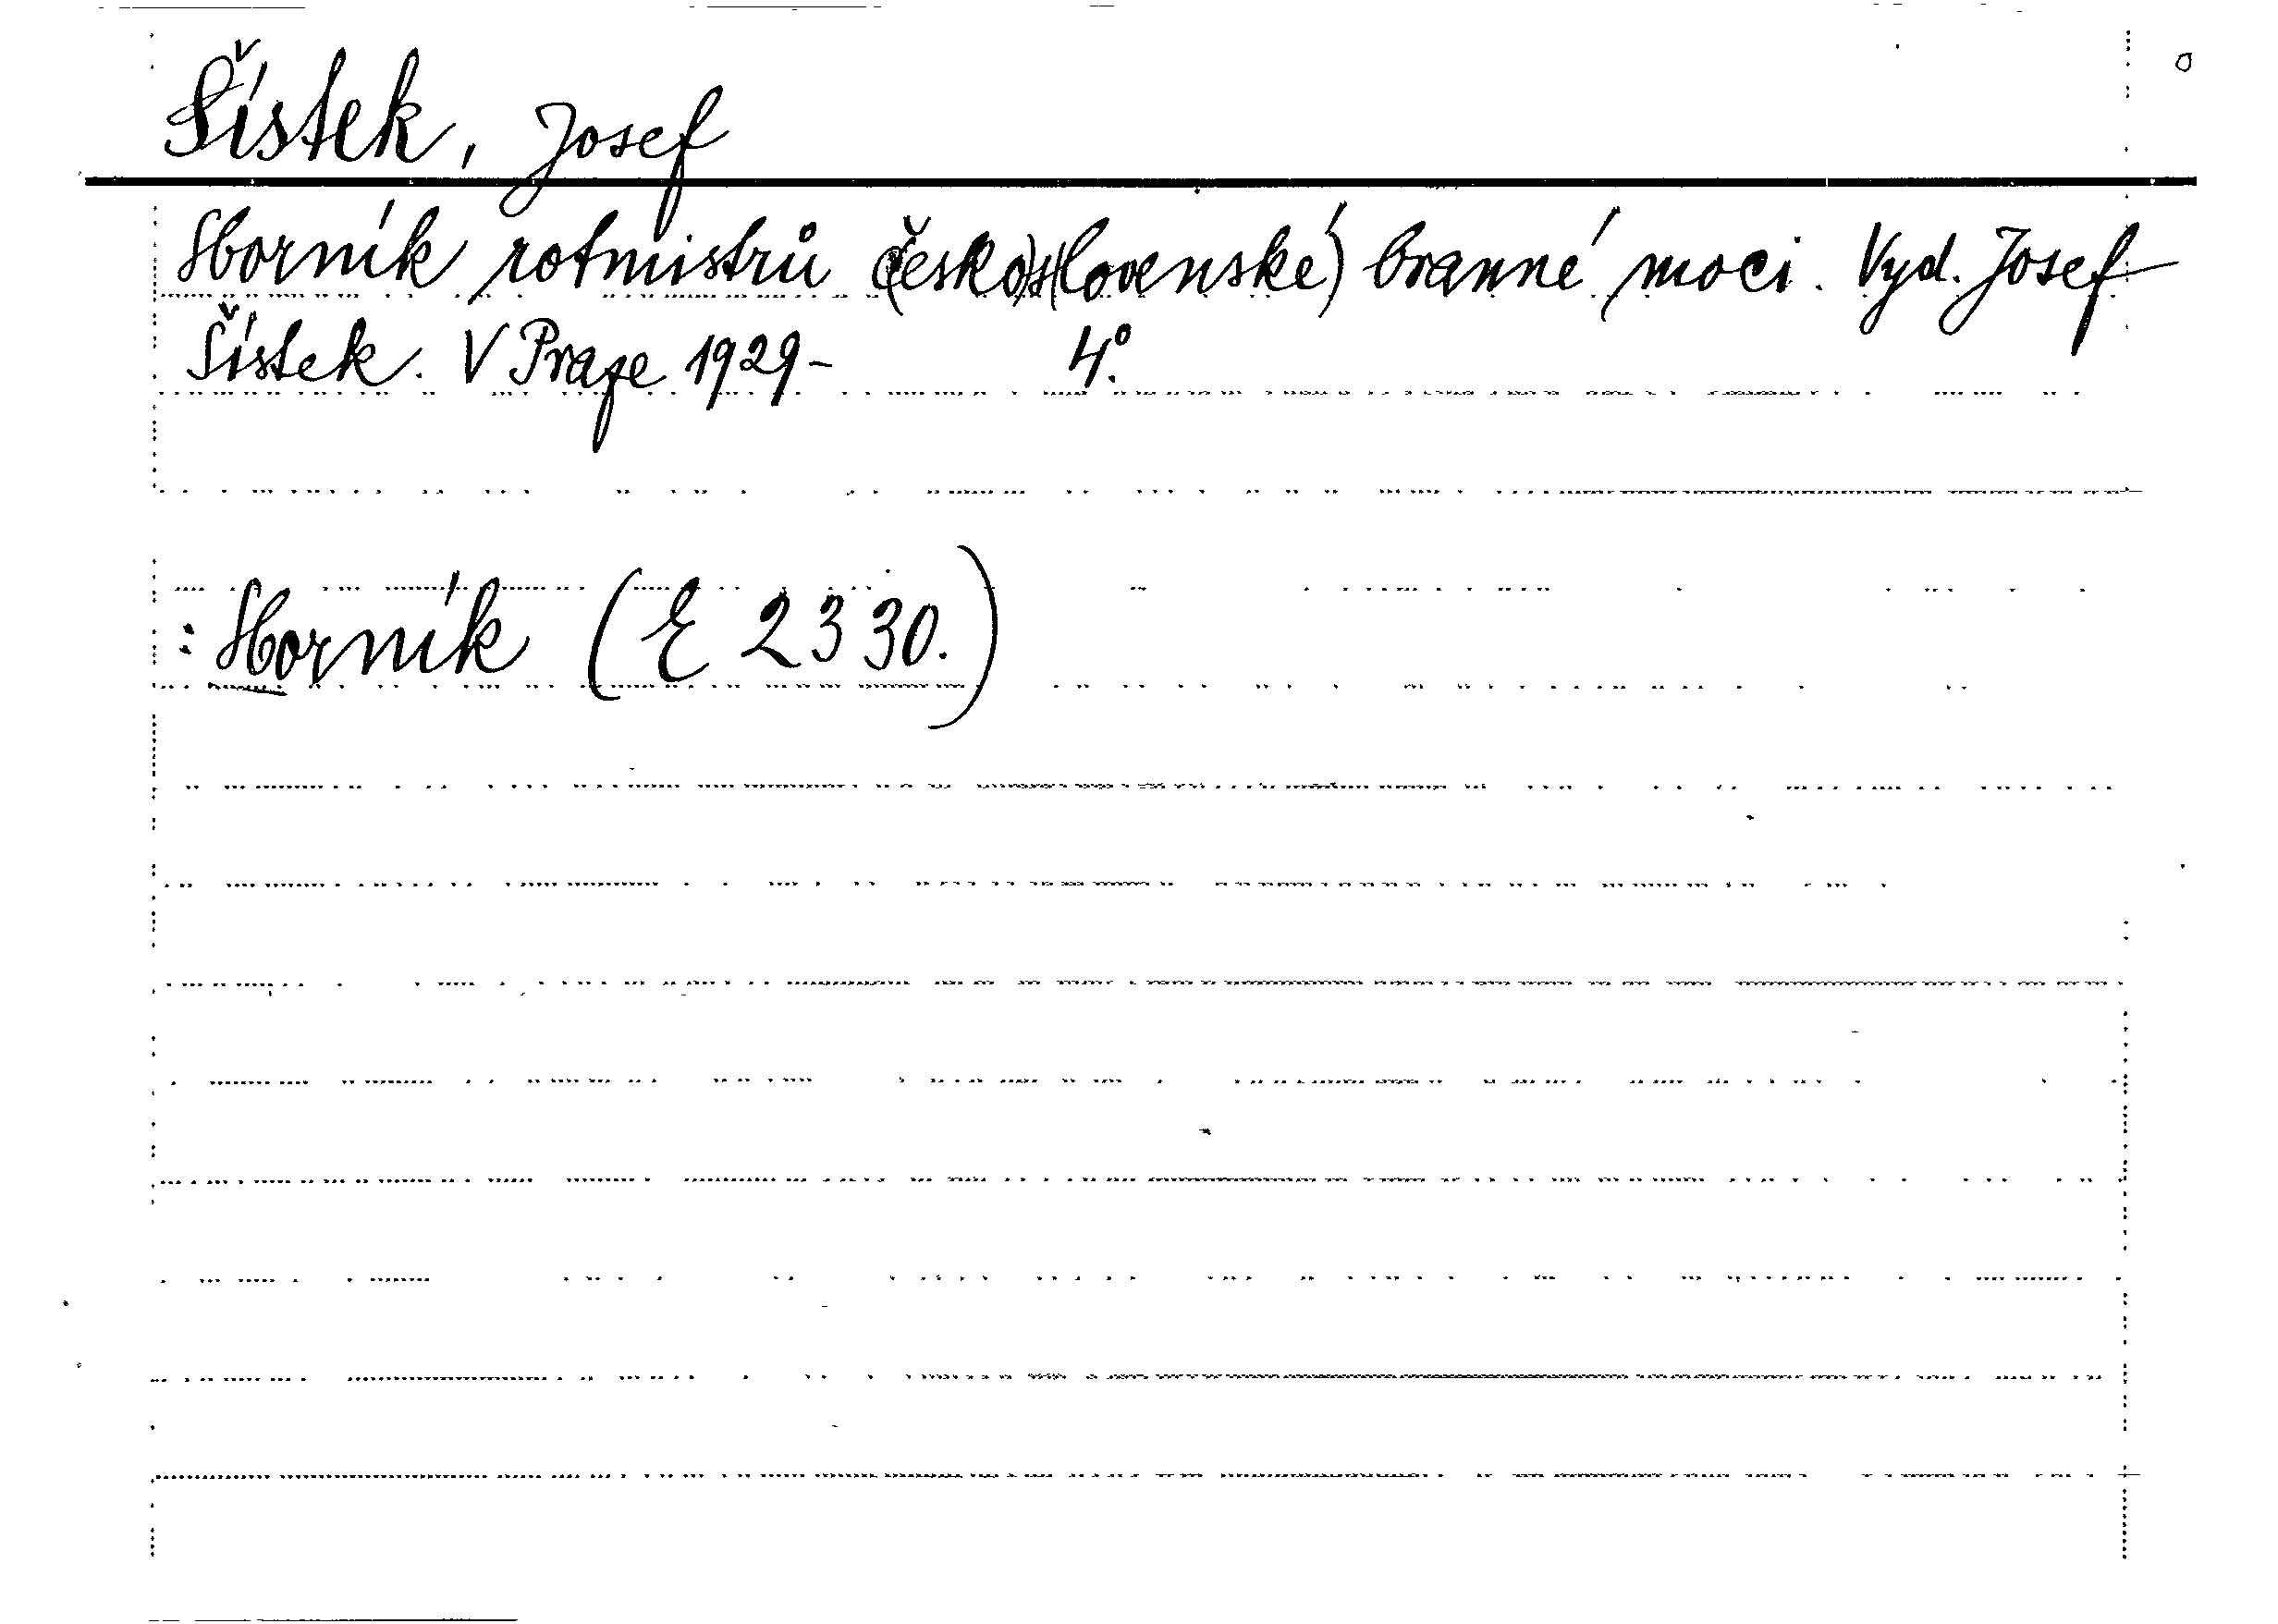 Šístek, Josef
Sborník rotmistrů (česko)s(lovenské) branné moci. Vyd. Josef
Šístek. V Praze 1929- 4°.
: Sborník (E 2330.)